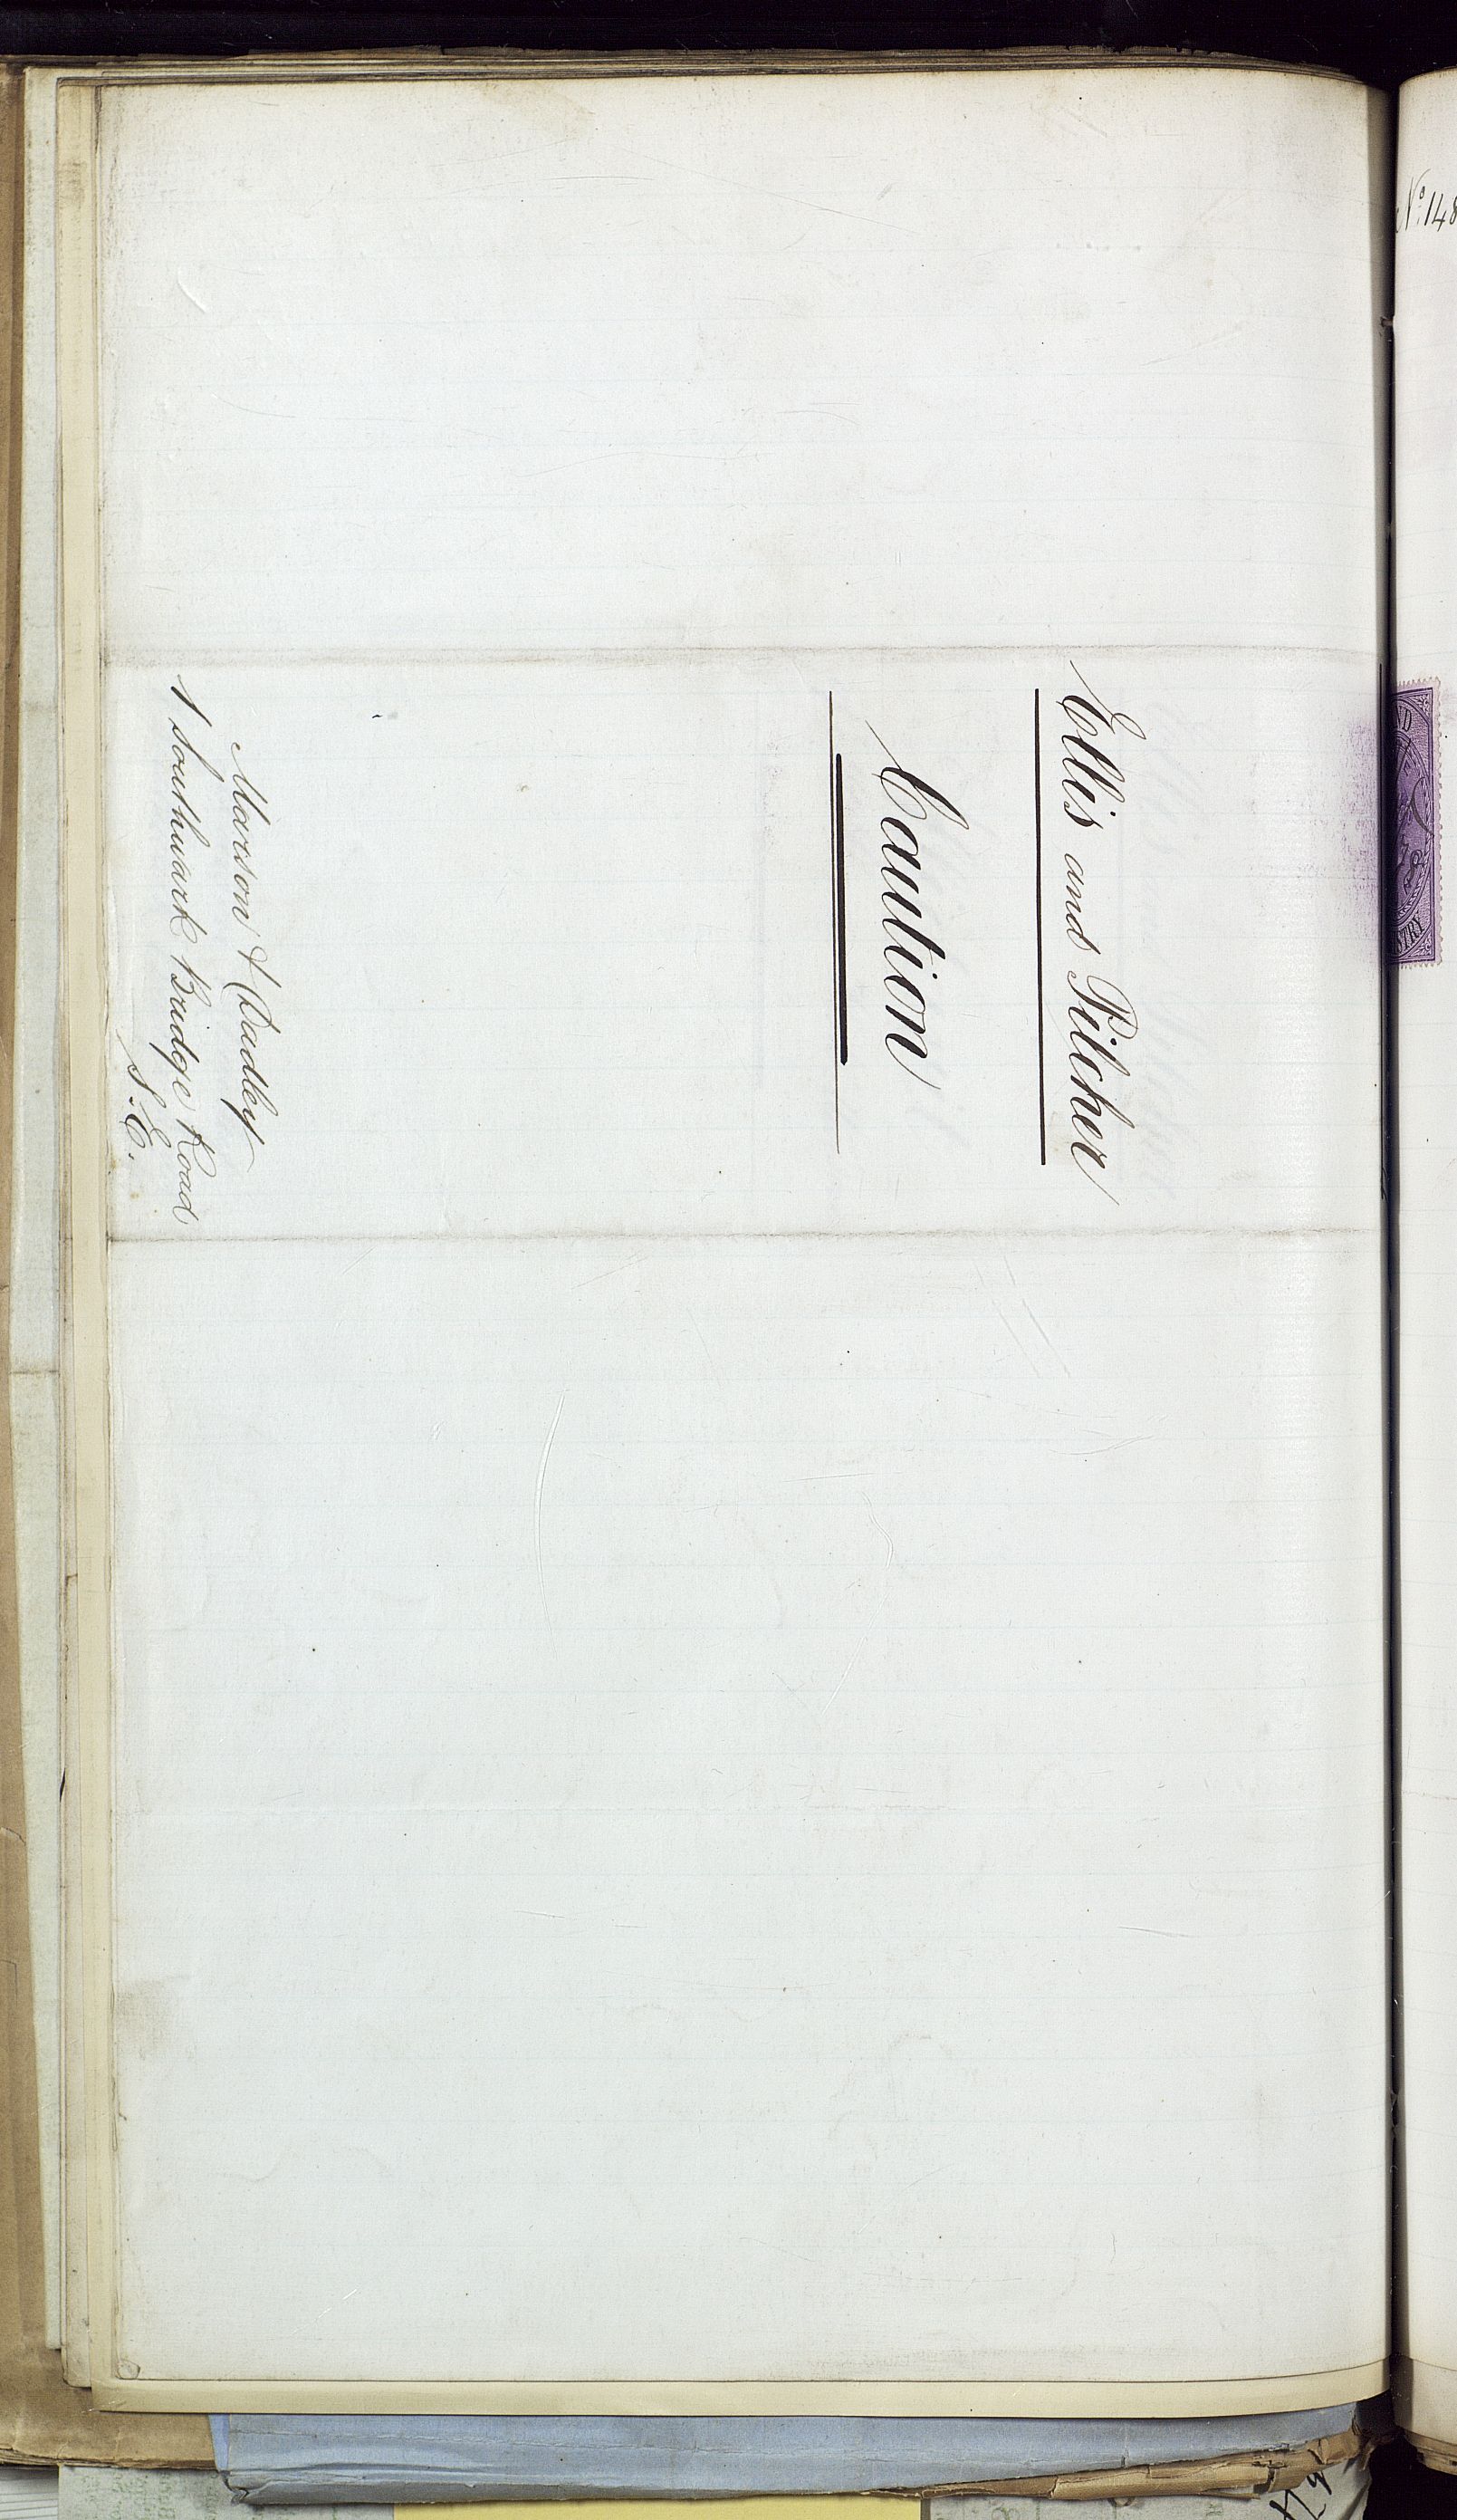 Ellis and Pilcher
Caution
Marson & Dadley
1 Southwark Bridge Road
S.E.
No. 148